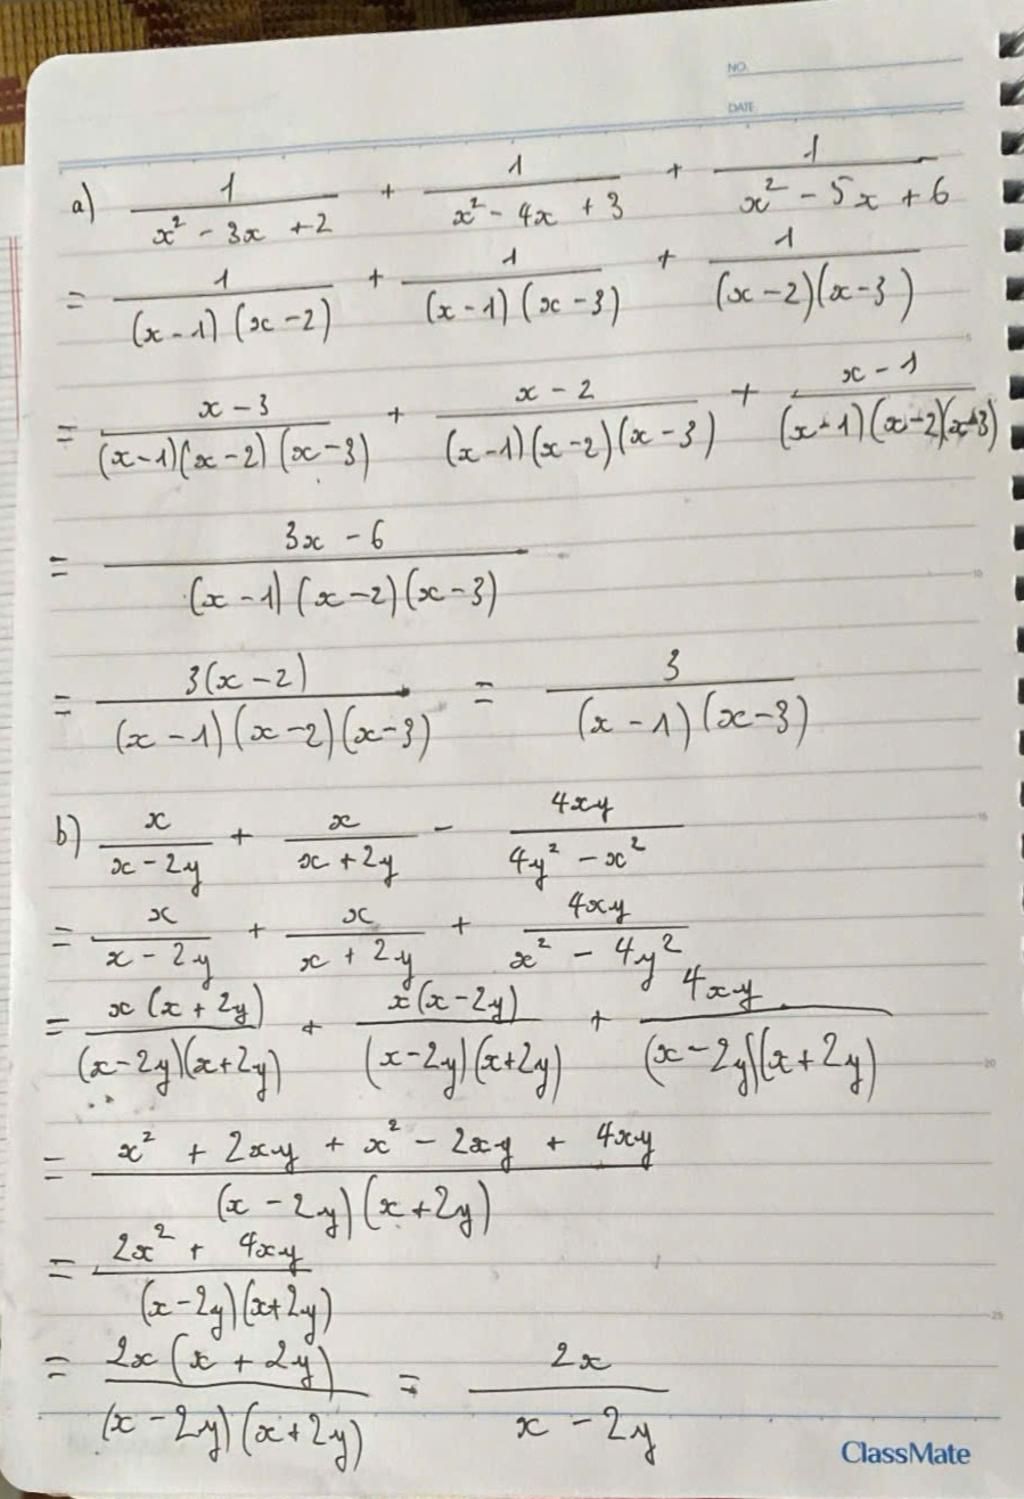 NO.
DATE
a) 1/(x² - 3x + 2) + 1/(x² - 4x + 3) + 1/(x² - 5x + 6)
= 1/((x-1)(x-2)) + 1/((x-1)(x-3)) + 1/((x-2)(x-3))
= (x-3)/((x-1)(x-2)(x-3)) + (x-2)/((x-1)(x-2)(x-3)) + (x-1)/((x-1)(x-2)(x-3))
= (3x-6)/((x-1)(x-2)(x-3))
= 3(x-2)/((x-1)(x-2)(x-3)) = 3/((x-1)(x-3))
b) x/(x-2y) + x/(x+2y) - 4xy/(4y² - x²)
= x/(x-2y) + x/(x+2y) + 4xy/(x² - 4y²)
= x(x+2y)/((x-2y)(x+2y)) + x(x-2y)/((x-2y)(x+2y)) + 4xy/((x-2y)(x+2y))
= (x² + 2xy + x² - 2xy + 4xy)/((x-2y)(x+2y))
= (2x² + 4xy)/((x-2y)(x+2y))
= 2x(x+2y)/((x-2y)(x+2y)) = 2x/(x-2y)
ClassMate